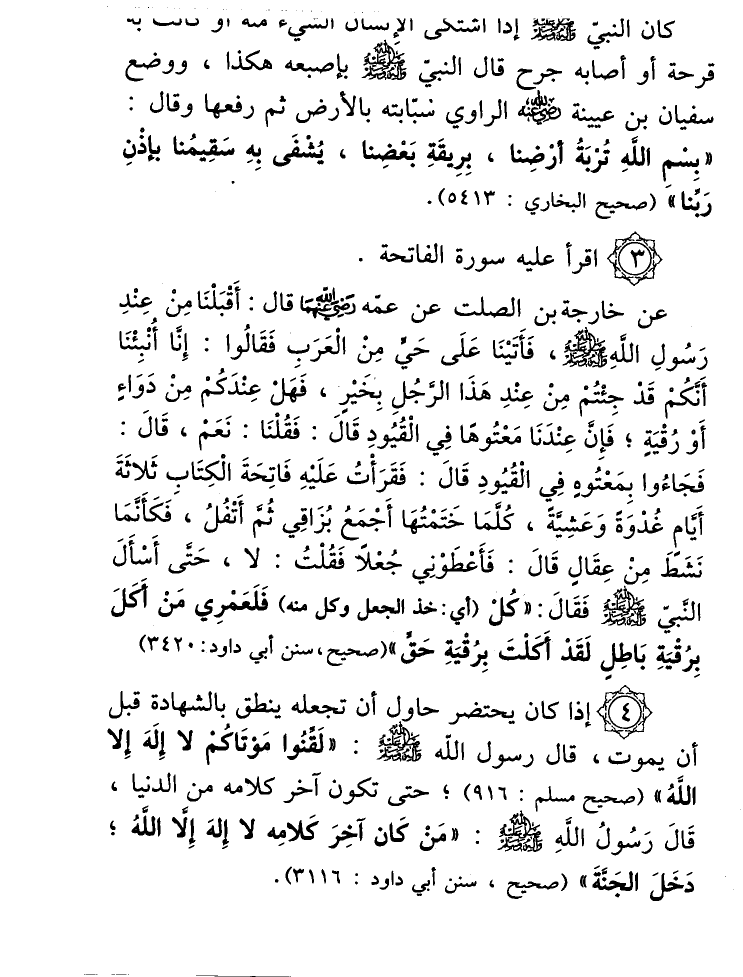 كان النبيّ ﷺ إذا اشتكى الإنسان الشيء منه أو كانت به
قرحة أو أصابه جرح قال النبيّ ﷺ بإصبعه هكذا ، ووضع
سفيان بن عيينة رضي الله عنه الراوي سبّابته بالأرض ثم رفعها وقال :
«بِسْمِ اللَّهِ تُرْبَةُ أرْضِنا ، بِرِيقَةِ بَعْضِنا ، يُشْفَى بِهِ سَقِيمُنا بإذْنِ
رَبِّنا» (صحيح البخاري : ٥٤١٣).
٣ اقرأ عليه سورة الفاتحة .
عن خارجة بن الصلت عن عمّه رضي الله عنهما قال : أَقْبَلْنَا مِنْ عِنْدِ
رَسُولِ اللَّهِ ﷺ ، فَأَتَيْنَا عَلَى حَيٍّ مِنْ الْعَرَبِ فَقَالُوا : إِنَّا أُنْبِئْنَا
أَنَّكُمْ قَدْ جِئْتُمْ مِنْ عِنْدِ هَذَا الرَّجُلِ بِخَيْرٍ ، فَهَلْ عِنْدَكُمْ مِنْ دَوَاءٍ
أَوْ رُقْيَةٍ ؛ فَإِنَّ عِنْدَنَا مَعْتُوهًا فِي الْقُيُودِ قَالَ : فَقُلْنَا : نَعَمْ ، قَالَ :
فَجَاءُوا بِمَعْتُوهٍ فِي الْقُيُودِ قَالَ : فَقَرَأْتُ عَلَيْهِ فَاتِحَةَ الْكِتَابِ ثَلاثَةَ
أَيَّامٍ غُدْوَةً وَعَشِيَّةً ، كُلَّمَا خَتَمْتُهَا أَجْمَعُ بُزَاقِي ثُمَّ أَتْفُلُ ، فَكَأَنَّمَا
نَشَطَ مِنْ عِقَالٍ قَالَ : فَأَعْطَوْنِي جُعْلًا فَقُلْتُ : لا ، حَتَّى أَسْأَلَ
النَّبِيّ ﷺ فَقَالَ: «كُلْ (أي: خذ الجعل وكل منه) فَلَعَمْرِي مَنْ أَكَلَ
بِرُقْيَةِ بَاطِلٍ لَقَدْ أَكَلْتَ بِرُقْيَةِ حَقٍّ»(صحيح، سنن أبي داود: ٣٤٢٠)
٤ إذا كان يحتضر حاول أن تجعله ينطق بالشهادة قبل
أن يموت ، قال رسول اللّه ﷺ : «لَقِّنُوا مَوْتَاكُمْ لا إِلَهَ إلا
اللَّهُ» (صحيح مسلم : ٩١٦) ؛ حتى تكون آخر كلامه من الدنيا ،
قَالَ رَسُولُ اللَّهِ ﷺ : «مَنْ كَان آخِرَ كَلامِه لا إلهَ إلَّا اللَّهُ ؛
دَخَلَ الجَنَّةَ» (صحيح ، سنن أبي داود : ٣١١٦).